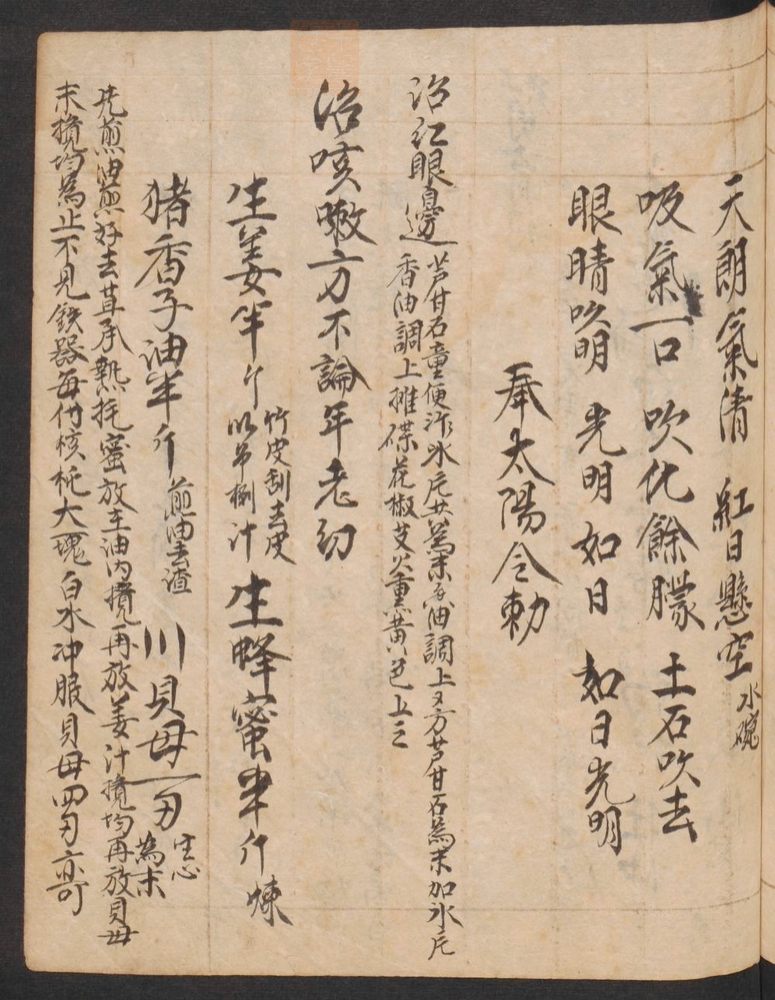 天朗氣清 紅日懸空 水碗
吸氣一口 吹化餘朦 土石吹去
眼睛吹明 光明如日 如日光明
奉太陽令勅
治红眼邊 芦甘石童便淬氷片共為末香油調上又方芦甘石為末加氷片
香油調上摊碟花椒艾火熏黄色上之
治咳嗽方不論年老幼
生姜半斤 竹皮刮去皮
以布捌汁 生蜂蜜半斤煉
猪香子油半斤 煎油去渣 川貝母一刄 去心
為末
先煎油煎好去其承熱抚蜜放在油内攪再放姜汁攪均再放貝母
末攪均為止不見鉄器每付核桃大一塊白水冲服貝母四刄亦可